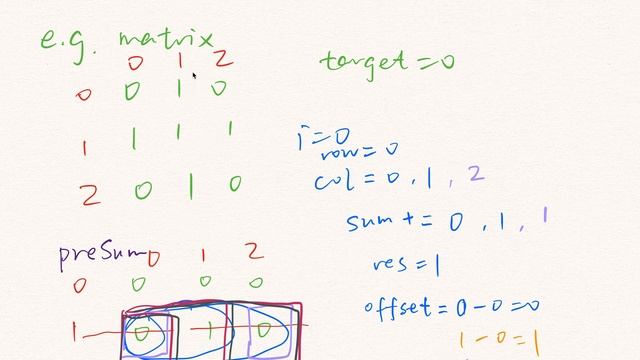 e.g. matrix
0 1 2
0 0 1 0
1 1 1 1
2 0 1 0
target = 0
i = 0
row = 0
col = 0 , 1 , 2
sum += 0 , 1 , 1
res = 1
offset = 0 - 0 = 0
1 - 0 = 1
preSum 0 1 2
0 0 0 0
1 0 1 0